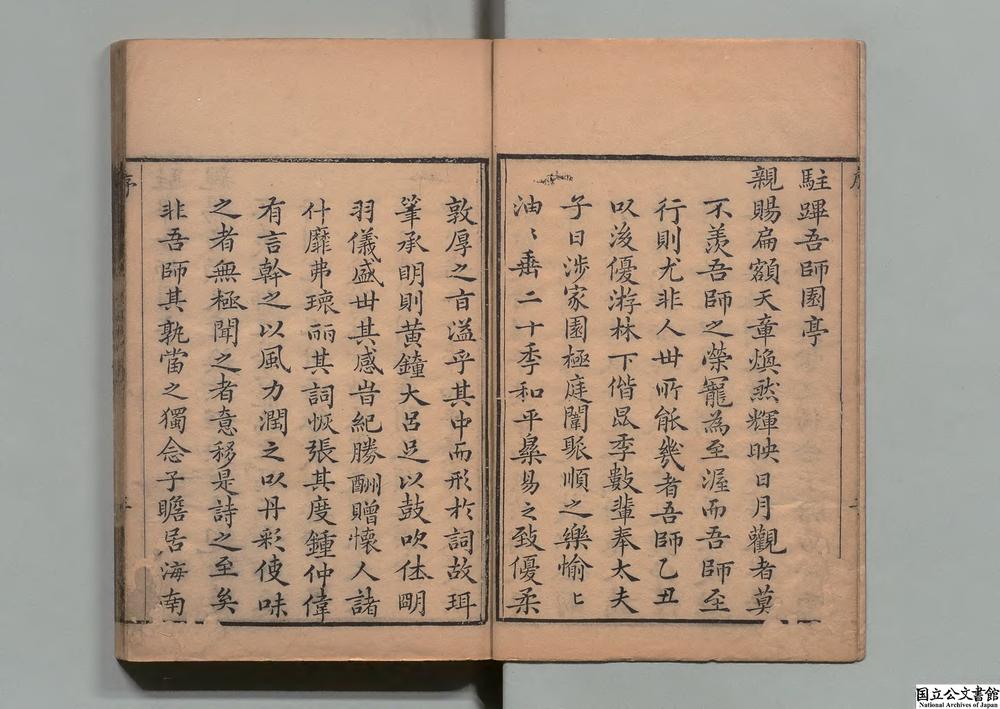 駐蹕吾師園亭
親賜扁額天章煥然輝映日月觀者莫
不羨吾師之榮寵為至渥而吾師至
行則尤非人世所能幾者吾師乙丑
以後優游林下偕昆季數輩奉太夫
子日涉家園極庭闈聚順之樂愉〻
油〻垂二十季和平樂易之致優柔
敦厚之旨溢乎其中而形於詞故珥
筆承明則黃鐘大呂足以鼓吹休明
羽儀盛世其感昔紀勝酬贈懷人諸
什靡弗瓌麗其詞恢張其度鍾仲偉
有言幹之以風力潤之以丹彩使味
之者無極聞之者意移是詩之至矣
非吾師其孰當之獨念子瞻居海南
序
国立公文書館
National Archives of Japan